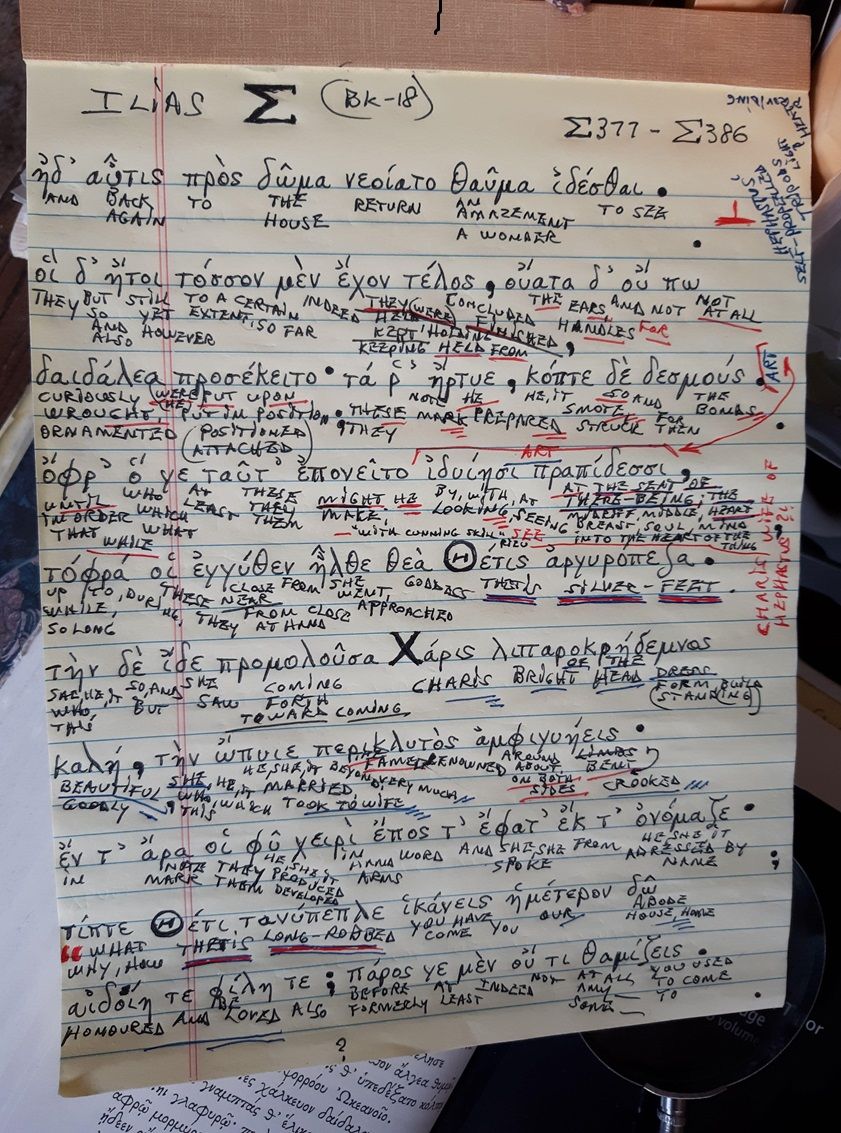 ILiAS Σ (BK-18)
Σ377 - Σ386
ἠδ' αὖτις πρὸς δῶμα νεοίατο θαῦμα ἰδέσθαι.
AND BACK TO THE RETURN AN TO SEE
AGAIN HOUSE AMAZEMENT
A WONDER
οἱ δ' ἤτοι τόσσον μὲν ἔχον τέλος, οὔατα δ' οὔ πω
THEY BUT STILL TO A CERTAIN INDEED THEY (WERE) CONCLUDED THE EARS AND NOT NOT
SO YET EXTENT, SO FAR HELD FINISHED, HANDLES FAR AT ALL
AND HOWEVER KEPT HOLDING
ALSO KEEPING HELD FROM
δαιδάλεα προσέκειτο· τά ῥ' ἤρτυε, κόπτε δὲ δεσμούς.
CURIOUSLY WERE PUT UPON NOTE HE HE, IT SO AND THE
WROUGHT, PUT IN POSITION. THESE MARK PREPARED SMOTE, FOR BONDS
ORNAMENTED (POSITIONED THEY STRUCK THEN
ATTACHED)
ART
ART
ὄφρ' ὅ γε ταῦτ' ἐπονεῖτο ἰδυίῃσι πραπίδεσσι,
UNTIL WHO AT THESE MIGHT HE BY, WITH, AT AT THE SEAT OF
IN ORDER WHICH LEAST THEY MAKE, LOOKING, SEEING THERE-BEING, THE
THAT WHAT THEM "WITH CUNNING SKILL" SEE BREAST, SOUL, MIND
WHILE INTO THE HEART OF THE THING
τόφρά οἱ ἐγγύθεν ἦλθε θεὰ Θέτις ἀργυρόπεζα.
UP TO, DURING THESE NEAR CLOSE FROM SHE WENT, GODDESS THETIS SILVER-FEET.
WHILE, HE, THEY FROM CLOSE APPROACHED
SO LONG AT HAND
τὴν δὲ ἴδε προμολοῦσα Χάρις λιπαροκρήδεμνος
SHE, HE, IT SO, AND SHE COMING CHARIS BRIGHT OF THE HEAD DRESS
WHO, BUT SAW FORTH
THIS TOWARD COMING
καλή, τὴν ὤπυιε περικλυτὸς ἀμφιγυήεις·
BEAUTIFUL SHE, HE, IT HE, SHE, IT BEYOND FAMED RENOWNED AROUND LIMBS
GOODLY WHO, MARRIED, VERY MUCH ABOUT BENT
THIS, WHICH TOOK TO WIFE ON BOTH SIDES CROOKED
ἔν τ' ἄρα οἱ φῦ χειρὶ ἔπος τ' ἔφατ' ἔκ τ' ὀνόμαζε·
IN NOTE THEY HE, SHE, IT IN HAND WORD AND SHE SHE FROM HE, SHE IT
MARK THEM PRODUCED ARMS SPOKE ADDRESSED BY
DEVELOPED NAME
τίπτε Θέτι τανύπεπλε ἱκάνεις ἡμέτερον δῶ
"WHAT THETIS LONG-ROBED YOU HAVE OUR ABODE
WHY, HOW COME YOU HOUSE, HOME
αἰδοίη τε φίλη τε; πάρος γε μὲν οὔ τι θαμίζεις.
HONOURED AND BE LOVED ALSO BEFORE AT INDEED NOT AT ALL YOU USED
FORMERLY LEAST ANY TO COME
SOME TO
?
HEPHAESTUS'
SELF-PROPELLED
TRIPODS
CHARIS, WIFE OF
HEPHAESTUS?!